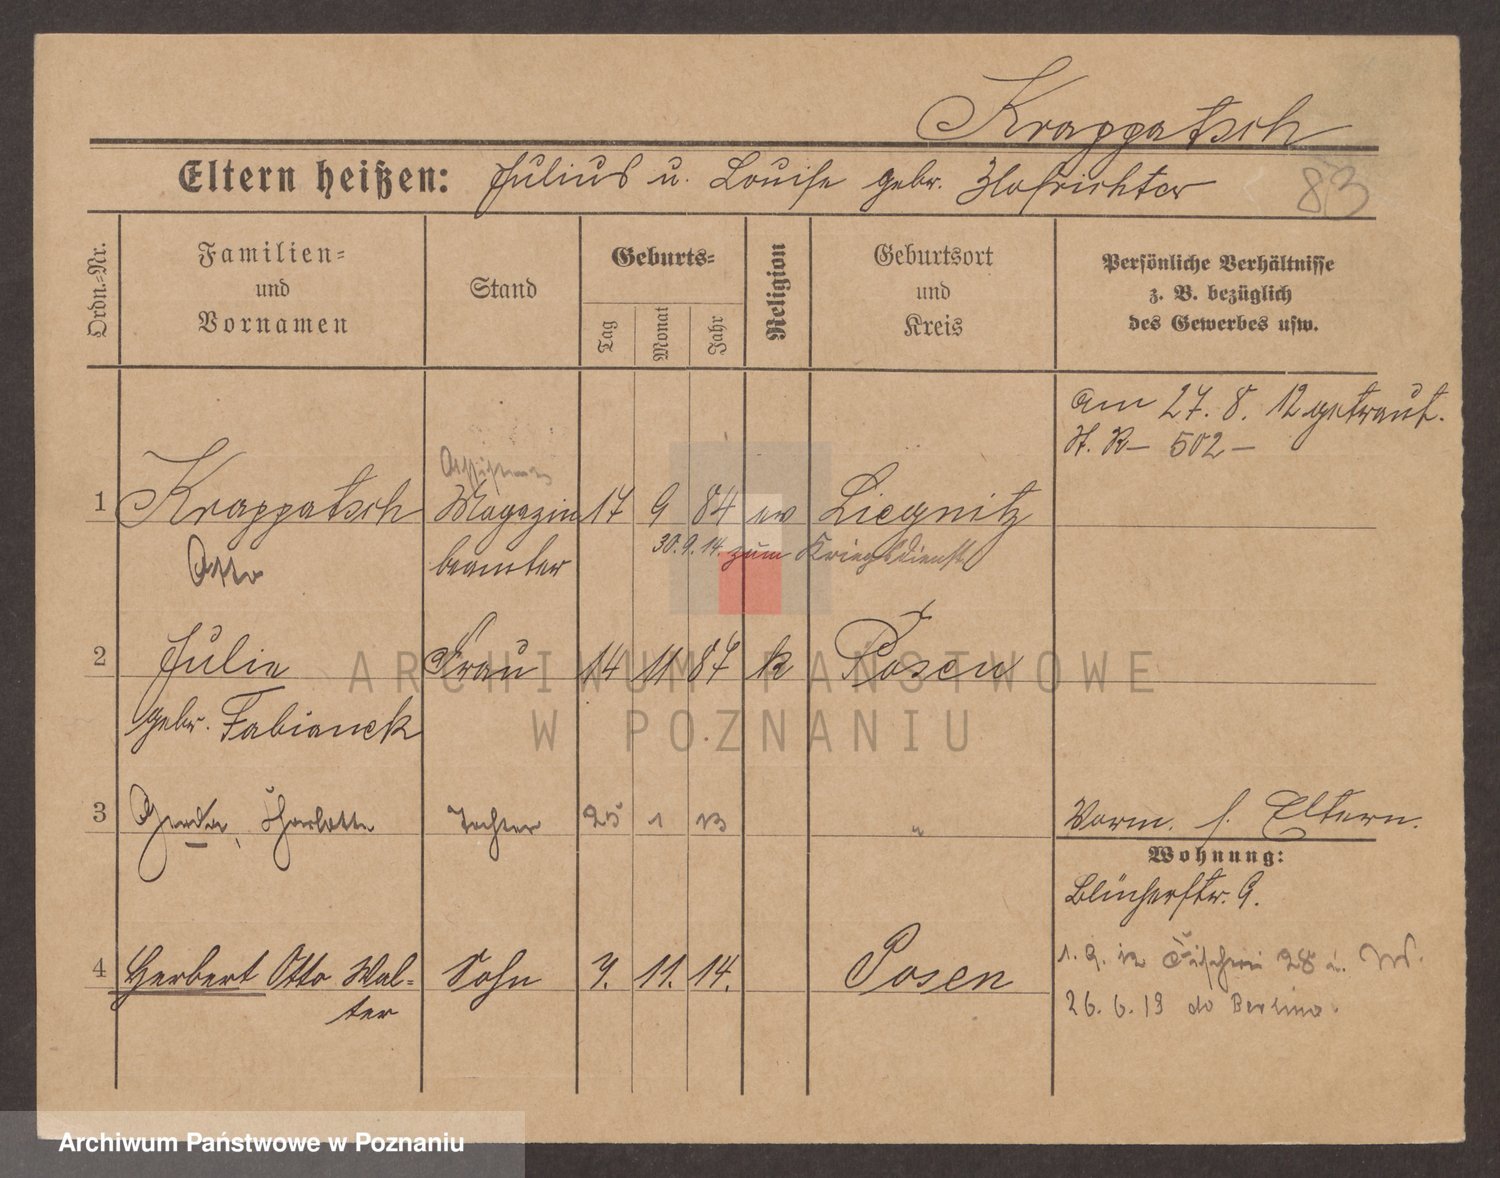 Krappatsch
Eltern heißen: Julius u. Louise gebr. Hofrichter
83
Ordn.-Nr.
Familien-
und
Vornamen
Stand
Geburts-
Tag
Monat
Jahr
Religion
Geburtsort
und
Kreis
Persönliche Verhältnisse
z. B. bezüglich
des Gewerbes usw.
am 27. 8. 12 getraut.
H. R- 502 -
1 Krappatsch Magazin 17 9 84 ev Liegnitz
Otto beamter
30.9.14. zum Kriegsdienst
2 Julie Frau 14 11 87 k Posen
gebr. Fabianek
3 Gerda, Charlotte Tochter 25 1 13 "
Vorm. s. Eltern.
Wohnung:
Blücherstr. 9.
4 Herbert Otto Wal- Sohn 7. 11. 14. Posen
ter
1. 9. 12 Fischerei 28
26. 6. 19 do Berlina.
ARCHIWUM PAŃSTWOWE
W POZNANIU
Archiwum Państwowe w Poznaniu